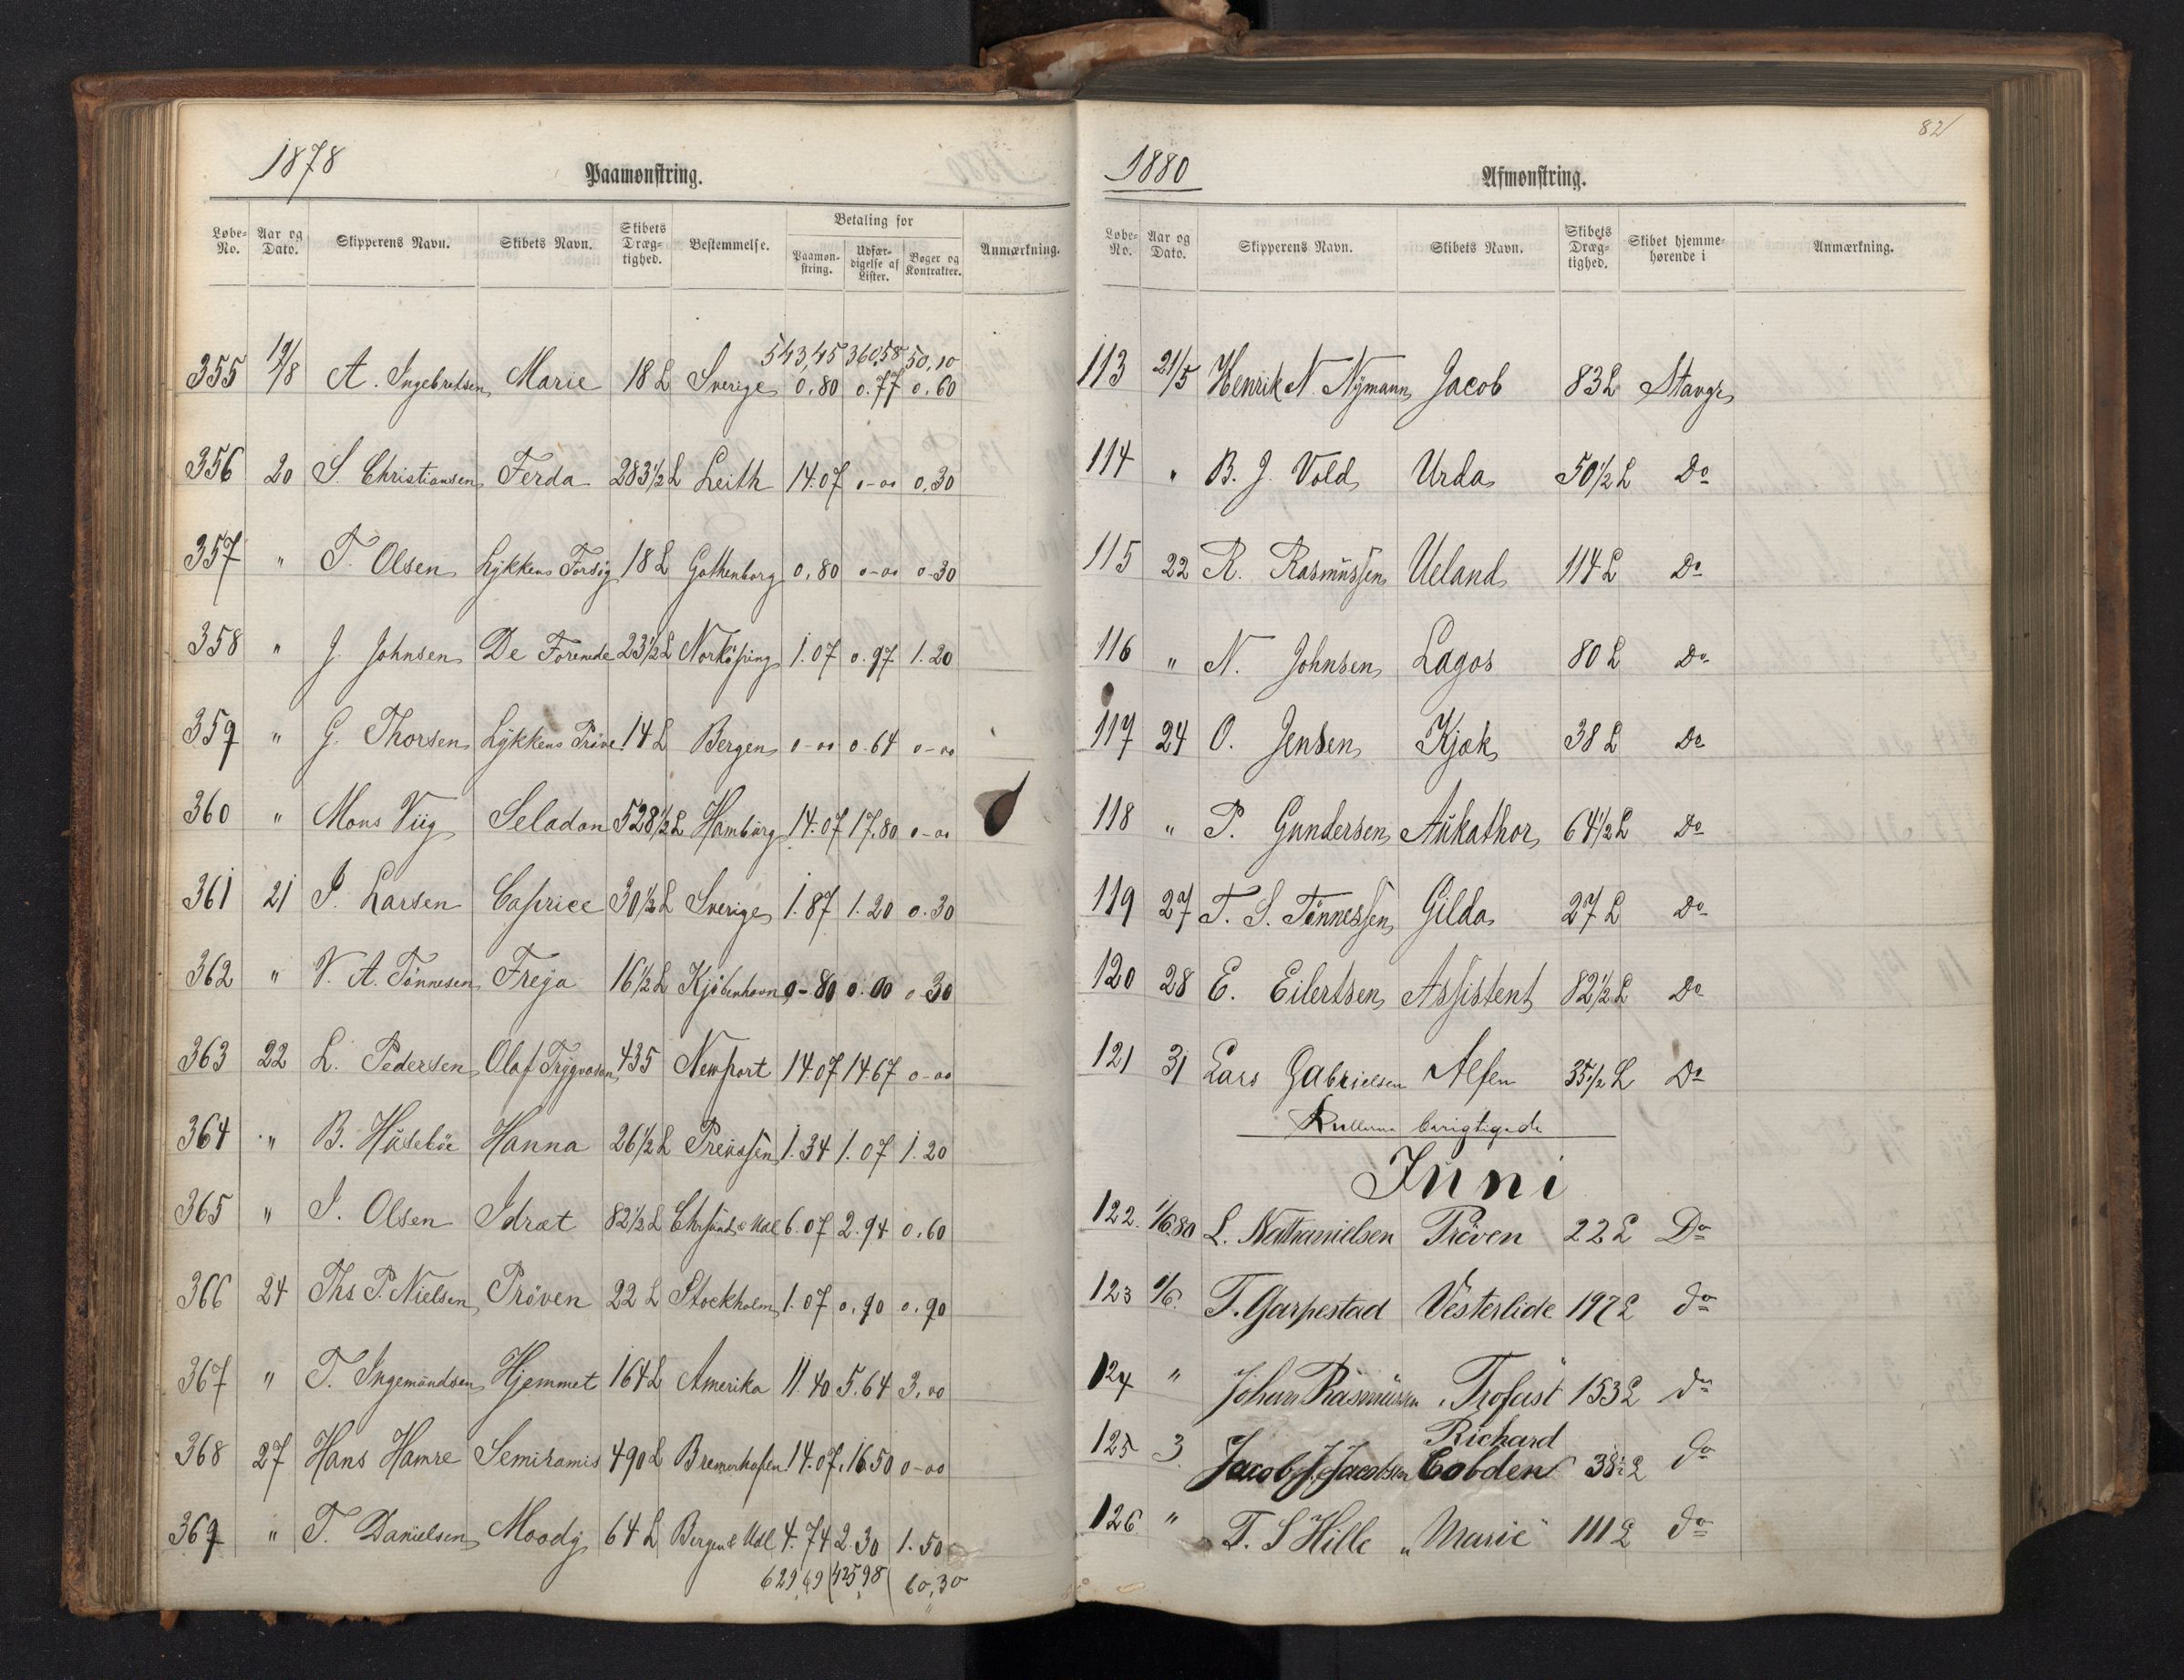 1878 Paamønstring.
Løbe-No. Aar og Dato. Skipperens Navn. Skibets Navn. Skibets Dræg-tighed. Bestemmelse. Betaling for Paamøn-string. Udfær-digelse af Lister. Bøger og Kontrakter. Anmærkning.
543,45 360,58 50,10
355 19/8 A. Ingebretsen Marie 18 L Sverige 0.80 0.77 0.60
356 20 S. Christiansen Ferda 283 1/2 L Leith 14.07 0-00 0.30
357 " T. Olsen Lykkens Forsøg 18 L Gothenborg 0.80 0-00 0-30
358 " J. Johnsen De Forenede 23 1/2 L Norköping 1.07 0.97 1.20
359 " G. Thorsen Lykkens Prøve 14 L Bergen 0-00 0.64 0-00
360 " Mons Viig Seladon 528 1/2 L Hamburg 14.07 17.80 0-00
361 21 P. Larsen Caprice 30 1/2 L Sverige 1.87 1.20 0.30
362 " V. A. Tönnesen Freya 16 1/2 L Kjöbenhavn 0-80 0.00 0-30
363 22 L. Pedersen Olaf Trygvason 435 Newport 14.07 14.67 0-00
364 " B. Huseböe Hanna 26 1/2 L Preussen 1.34 1.07 1.20
365 " J. Olsen Idræt 82 1/2 L Chrsund & Udl 6.07 2.94 0.60
366 24 Ths P. Nielsen Pröven 22 L Stockholm 1.07 0.90 0.90
367 " T. Ingemundsen Hjemmet 164 L Amerika 11.40 5.64 3.00
368 27 Hans Hamre Semiramis 490 L Bremerhafen 14.07 16.50 0-00
369 " T. Danielsen Moody 64 L Bergen & Udl 4.74 2.30 1.50
629,69 425,98 60,30
82
1880 Afmønstring.
Løbe-No. Aar og Dato. Skipperens Navn. Skibets Navn. Skibets Dræg-tighed. Skibet hjemme-hørende i Anmærkning.
113 21/5 Henrik N. Nymann Jacob 83 L Stavgr
114 " B. J. Vold Urda 50 1/2 L Do
115 22 R. Rasmussen Ueland 114 L Do
116 " N. Johnsen Lagos 80 L Do
117 24 O. Jensen Kjæk 38 L Do
118 " P. Gundersen Aukathor 64 1/2 L Do
119 27 T. S. Tönnessen Gilda 27 L Do
120 28 E. Eilertsen Assistent 82 1/2 L Do
121 31 Lars Gabrielsen Alfen 35 1/2 L Do
Rullerne berigtigede
Juni
122. 1/6.80 L. Nathanielsen Pröven 22 L Do
123 1/6. T. Garpestad Vesterlide 197 L do
124 " Johan Rasmussen "Trofast" 153 L do
Richard
125 3. Jacob J. Jacobsen Cobden 38 1/2 L do
126 " T. S Hille "Marie" 111 L do